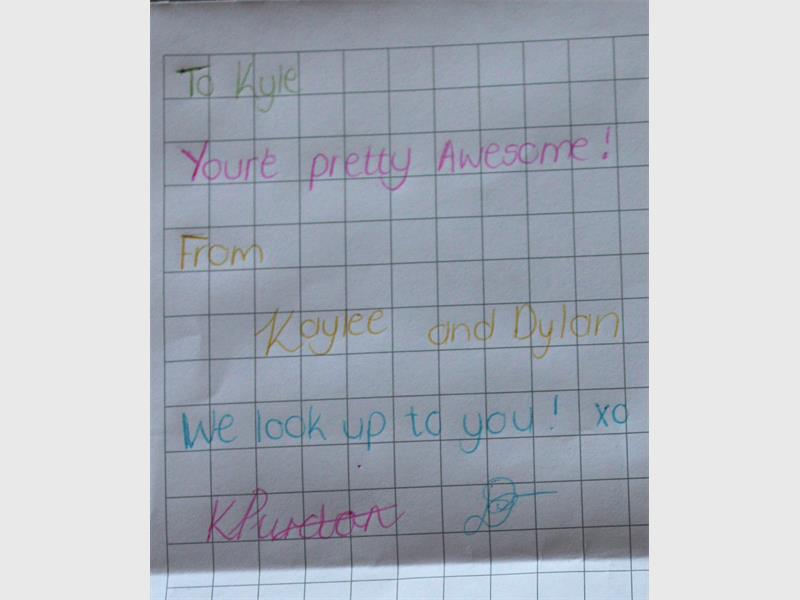 To Kyle
Youre pretty Awesome!
From
Kaylee and Dylan
We look up to you! xo
KPurdon